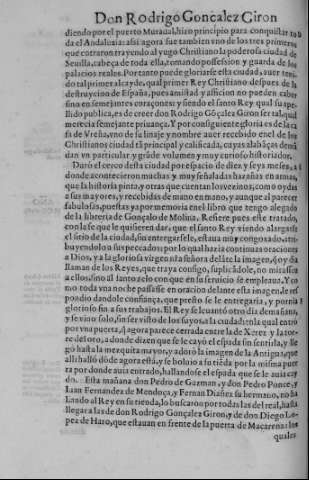 Don Rodrigo Gonçalez Giron
diendo por el puerto Muraual, hizo principio para conquistar toda
da el Andaluzia: assi agora fue tambien vno de los tres primeros
que entraron trayendo al yugo Christiano la poderosa ciudad de
Seuilla, cabeça de toda ella, tomando possession y guarda de los
palacios reales. Portanto puede gloriarse esta ciudad, auer teni-
do tal primer alcayde, qual primer Rey Christiano despues de la
destruycion de España, pues amistad y afficion no pueden caber
sino en semejantes coraçones: y siendo el santo Rey qual su
publica, es de creer don Rodrigo Gõçalez Giron ser tal, qual
merecia semejante priuança. Y por consiguiente gloria es de la ca
sa de Vreña, vno de su linaje y nombre auer recebido en el de los
Christianos ciudad tã principal y calificada, cuyas alabanças
dan vn particular y grãde volumen y muy curioso historiador.
Duró el cerco desta ciudad por espacio de diez y seys meses,
donde acontecieron muchas y muy señaladas hazañas en armas,
que la historia pinta, y otras que cuentan los vezinos, como oydas
a sus mayores, y recebidas de mano en mano, y aunque al parecer
fabulosas, puestas ya por memoria en el libro que tengo alegado
de la libreria de Gonçalo de Molina. Refiere pues este tratado,
con la fe que le quisieren dar, que el santo Rey viendo alargarse
el sitio de la ciudad, sin entregarsele, estaua muy congoxado, atri-
buyendolo a sus peccados: por lo qual hazia continuas oraciones
a Dios, y a la gloriosa virgen nr̃a señora delãte la imagen, q̃ oy dia
llaman de los Reyes, que traya consigo, suplicãdole, no mirassen
a ellos, sino al santo zelo con que en su seruicio se empleaua. Y co
mo toda vna noche passasse en oracion delante esta imagen, le res
pondio dandole confiança, que presto se le entregaria, y pornia
glorioso fin a sus trabajos. El Rey se leuantó otro dia demañana,
y se vino solo, sin ser visto de los suyos, a la ciudad: en la qual entró
por vna puerta, q̃ agora parece cerrada entre la de Xerez y la tor-
re del oro, a donde dizen que se le cayó el espada sin sentirla, y lle
gó hasta la mezquita mayor, y adoró la imagen de la Antigua, que
alli halló dõde agora está, y se boluio a su tiẽda por la misma puer
ta por donde auia entrado, hallandose el espada que se le auia cay
do. Esta mañana don Pedro de Guzman, y don Pedro Ponce, y
Iuan Fernandez de Mendoça, y Fernan Diañez su hermano, no ha
llando al Rey en su tienda, lo buscaron por todas las del real, hasta
llegar a las de don Rodrigo Gonçalez Giron, y de don Diego Lo-
pez de Haro, que estauan en frente de la puerta de Macarena: los
quales